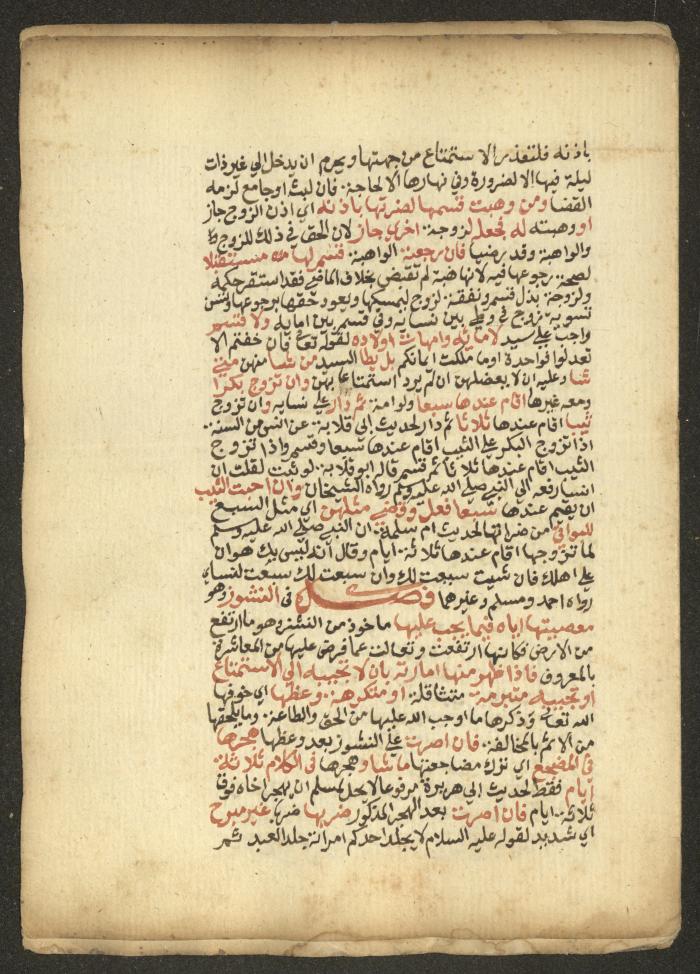 باذنه فلتعذر الاستمتاع من جهتها ويحرم ان يدخل الي غير ذات
ليلة فيها الا لضرورة وفي نهارها الا لحاجة فان لبث او جامع لزمه
القضا ومن وهبت قسمها لضرتها باذنه اي اذن الزوج جاز
او وهبته له فجعل لزوجة اخري جاز لان الحق في ذلك للزوج
والواهبة وقد رضيا فان رجعت الواهبة قسم لها مستقبلا
لصحة رجوعها فيه لانها هبة لم تقبض بخلاف الماضي فقد استقر حكمه
ولزوجة بذل قسم ونفقة لزوج ليمسكها ويعود حقها برجوعها وتسن
تسوية زوج في وطي بين نسايه وفي قسم بين امايه ولا قسم
واجب علي سيد لامايه وامهات اولاده لقوله تعالي فان خفتم الا
تعدلوا فواحدة او ما ملكت ايمانكم بل يطا السيد من شا منهن متي
شا وعليه ان لا يعضلهن ان لم يرد استمتاعا بهن وان تزوج بكرا
ومعه غيرها اقام عندها سبعا ولو امة ثم دار علي نسايه وان تزوج
ثيبا اقام عندها ثلاثا ثم دار لحديث ابي قلابة عن انس من السنة
اذا تزوج البكر علي الثيب اقام عندها سبعا وقسم واذا تزوج
الثيب اقام عندها ثلاثا ثم قسم قال ابو قلابة لو شئت لقلت ان
انسا رفعه الي النبي صلي الله عليه وسلم رواه الشيخان وان احبت الثيب
ان يقيم عندها سبعا فعل وقضي مثلهن اي مثل السبع
للبواقي من ضراتها لحديث ام سلمة ان النبي صلي الله عليه وسلم
لما تزوجها اقام عندها ثلاثة ايام وقال انه ليس بك هوان
علي اهلك فان شيت سبعت لك وان سبعت لك سبعت لنساي
رواه احمد ومسلم وغيرهما فصل في النشوز وهو
معصيتها اياه فيما يجب عليها ماخوذ من النشز وهو ما ارتفع
من الارض فكانها ارتفعت وتعالت عما فرض عليها من المعاشرة
بالمعروف فاذا ظهر منها امارته بان لا تجيبه الي الاستمتاع
او تجيبه متبرمة متثاقلة او متكرهة وعظها اي خوفها
الله تعالي وذكرها ما اوجب الله عليها من الحق والطاعة وما يلحقها
من الاثم بالمخالفة فان اصرت علي النشوز بعد وعظها هجرها
في المضجع اي ترك مضاجعتها ما شا وهجرها في الكلام ثلاثة
ايام فقط لحديث ابي هريرة مرفوعا لا يحل لمسلم ان يهجر اخاه فوق
ثلاثة ايام فان اصرت بعد الهجر المذكور ضربها ضربا غير مبرح
اي شديد لقوله عليه السلام لا يجلد احدكم امراته جلد العبد ثم